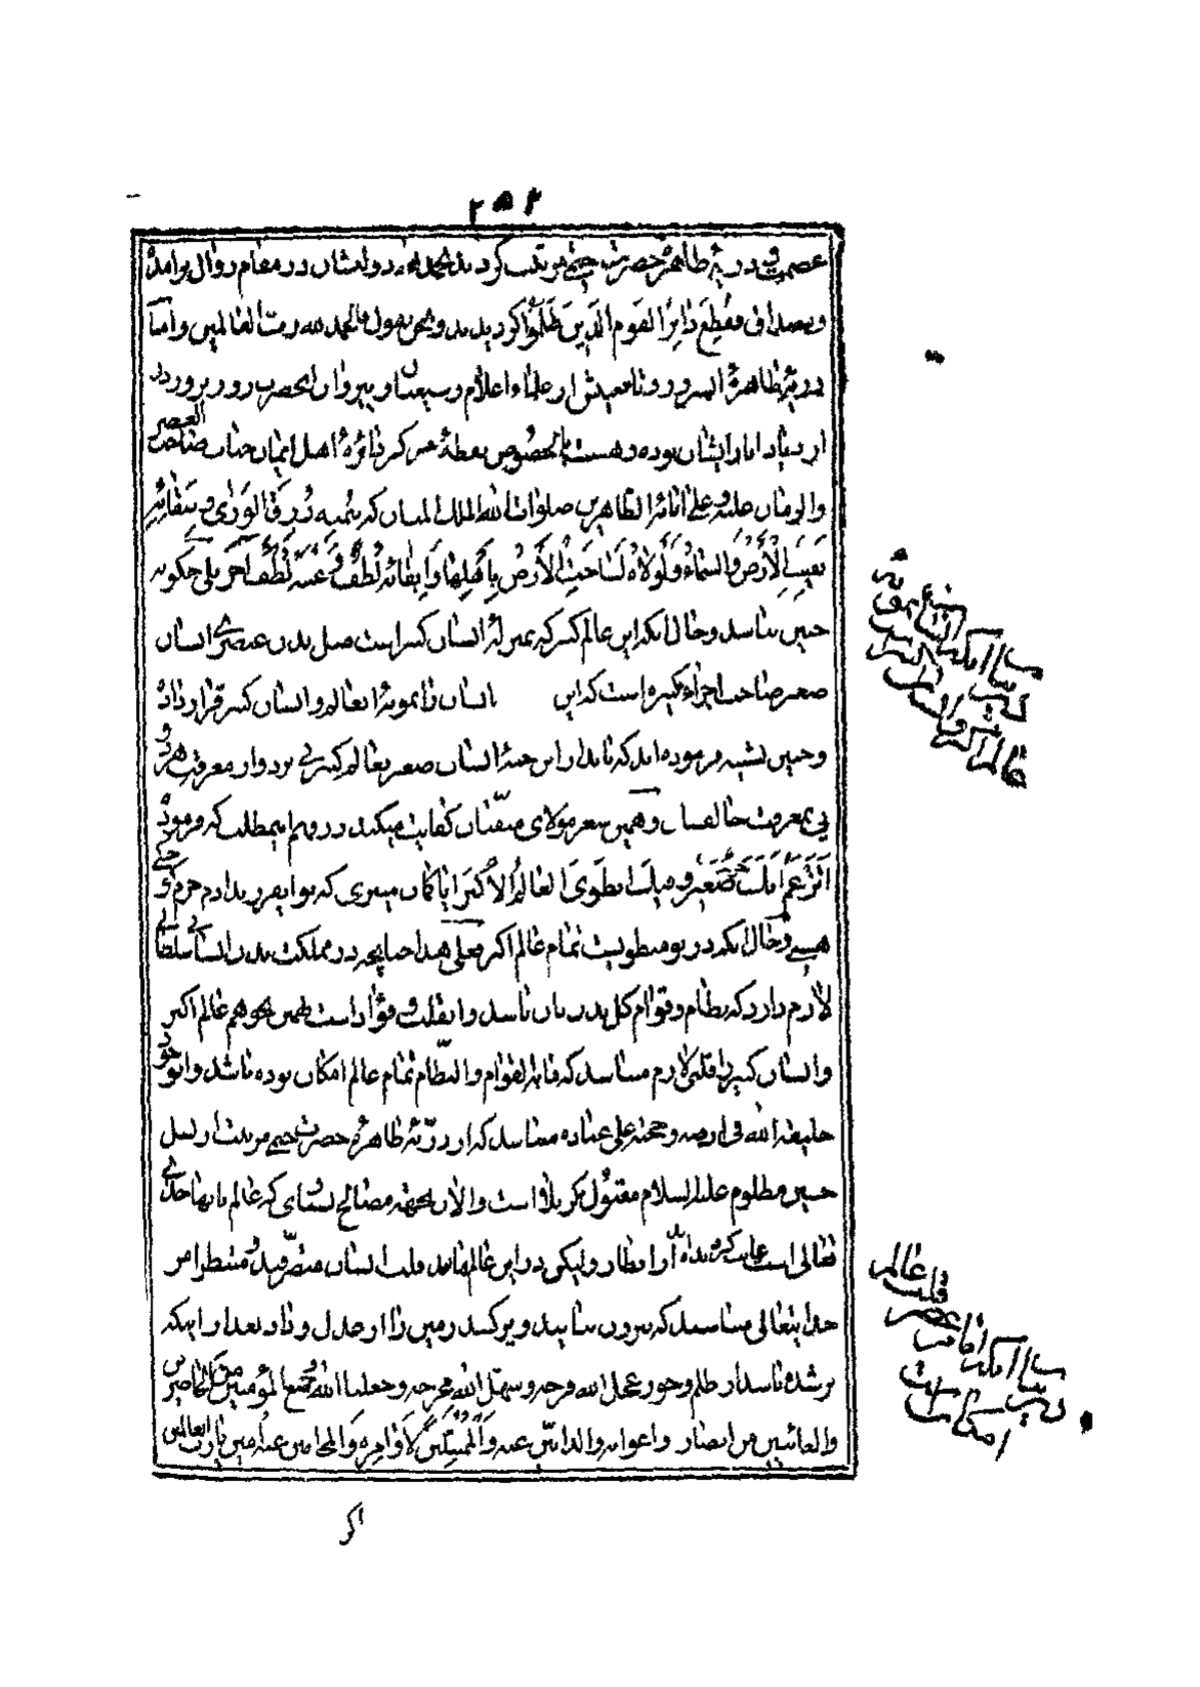 ۲۵۲
عصمت و در ذریّهٔ طاهرهٔ حضرت ختمی مرتبت کردند بحمد لله دولتشان در مقام زوال برآمده
و بمصداق فقطع دابر القوم الذین ظلموا گردیدند و نحن نقول والحمد لله رب العالمین و اما
ذریّهٔ طاهرهٔ آن سرور و تابعینش از علماء اعلام و شیعیان و پیروان آنحضرت روز بروز در
ازدیاد ایشان بوده و هست بالخصوص نقطهٔ مرکز دائرهٔ اهل ایمان جناب صاحب العصر
والزمان علیه و علی آبائه الطاهرین صلوات الله الملک المنان که بیمنه رزق الوری و ببقائه
بقیت الأرض والسماء ولولاه لساخت الأرض باهلها وابقائه لطف و غیبته لطف آخر بلی چگونه
چنین نباشد و حال آنکه این عالم کبیر که بمنزلهٔ انسان کبیر است مثل بدن عنصری انسان
صغیر صاحب اجزاء کثیره است که این انسان را نمونهٔ آن عالم و انسان کبیر قرار داده
و چنین تشبیه فرموده‌اند که تا بداند این جثهٔ انسان صغیر بعالم کبیر پی برد و از معرفت هر دو
پی بمعرفت خالقشان و همین شعر مولای متقیان کفایت میکند در فهم این مطلب که فرموده
اتزعم انک جرم صغیر و فیک انطوی العالم الأکبر آیا گمان میبری که تو ای فرزند آدم جرم کوچکی
هستی و حال آنکه در تو منطویست تمام عالم اکبر فعلی هذا چنانچه در مملکت بدن انسانی سلطانی
لازم دارد که نظام و قوام کل بدن بآن باشد و آن قلب و فؤاد است همین نحو هم عالم اکبر
و انسان کبیر را قلبی لازم میباشد که مابه القوام والنظام تمام عالم امکان بوده باشد و آن وجود
خلیفة الله فی ارضه و حجته علی عباده میباشد که از ذریّهٔ طاهرهٔ حضرت ختمی مرتبت از نسل
حسین مظلوم علیه السلام مقتول کربلا است والآن بجهة مصالح بسیاری که عالم بآنها خدای
تعالی است غایب کردیده از انظار ولیکن در این عالم مانند قلب انسان متصرفند و منتظر امر
خدایتعالی میباشند که بیرون بیایند و پر کنند زمین را از عدل و داد بعد از اینکه
پر شده باشد از ظلم و جور عجل الله فرجه و سهل الله مخرجه و جعلنا الله و جمیع المؤمنین من الناصرین
والعائنین من انصاره و اعوانه والذابین عنه والممتثلین لأوامره والمحامین عنه آمین یا رب العالمین
بیان آنکه انسان نمونه
عالم اکبر و انسان
قلب عالم
بیان آنکه امام عصر
امکان است
اکر